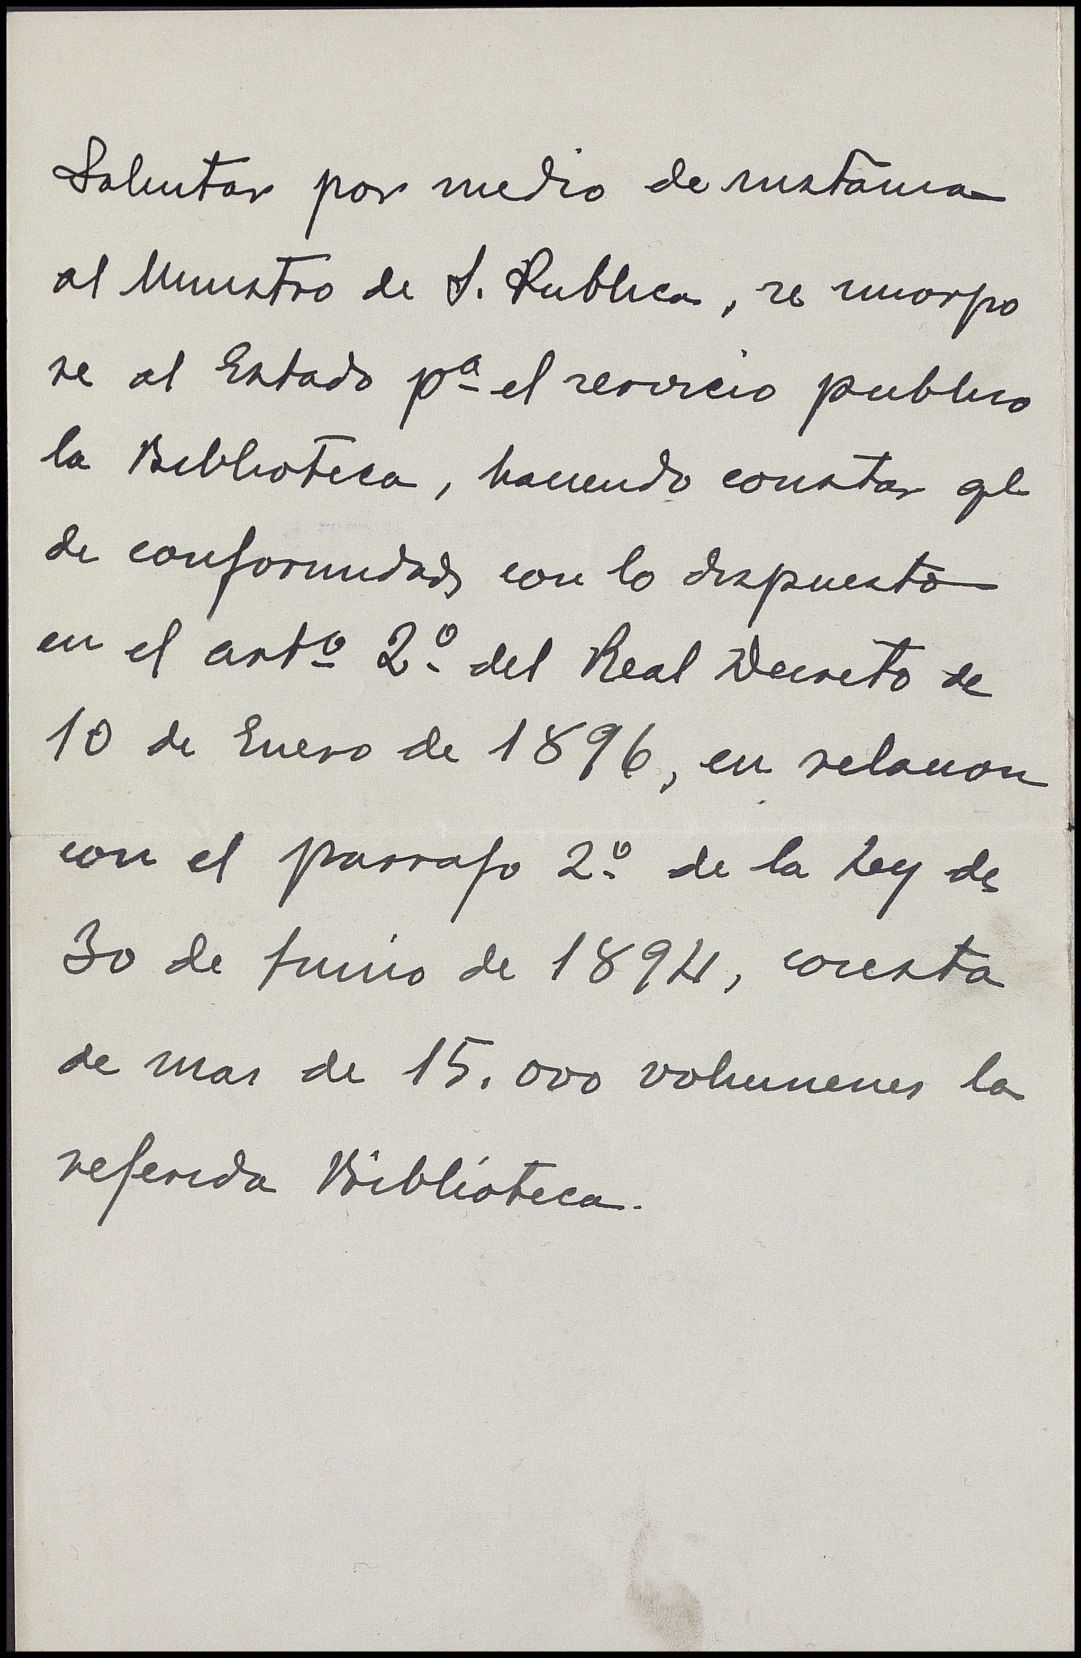 Solicitar por medio de instancia
al Ministro de I. Publica, se incorpo
re al Estado pª el servicio publico
la Biblioteca, haciendo constar qe
de conformidad con lo dispuesto
en el artº 2º del Real Decreto de
10 de Enero de 1896, en relacion
con el parrafo 2º de la Ley de
30 de Junio de 1894, consta
de mas de 15.000 volumenes la
referida Biblioteca.